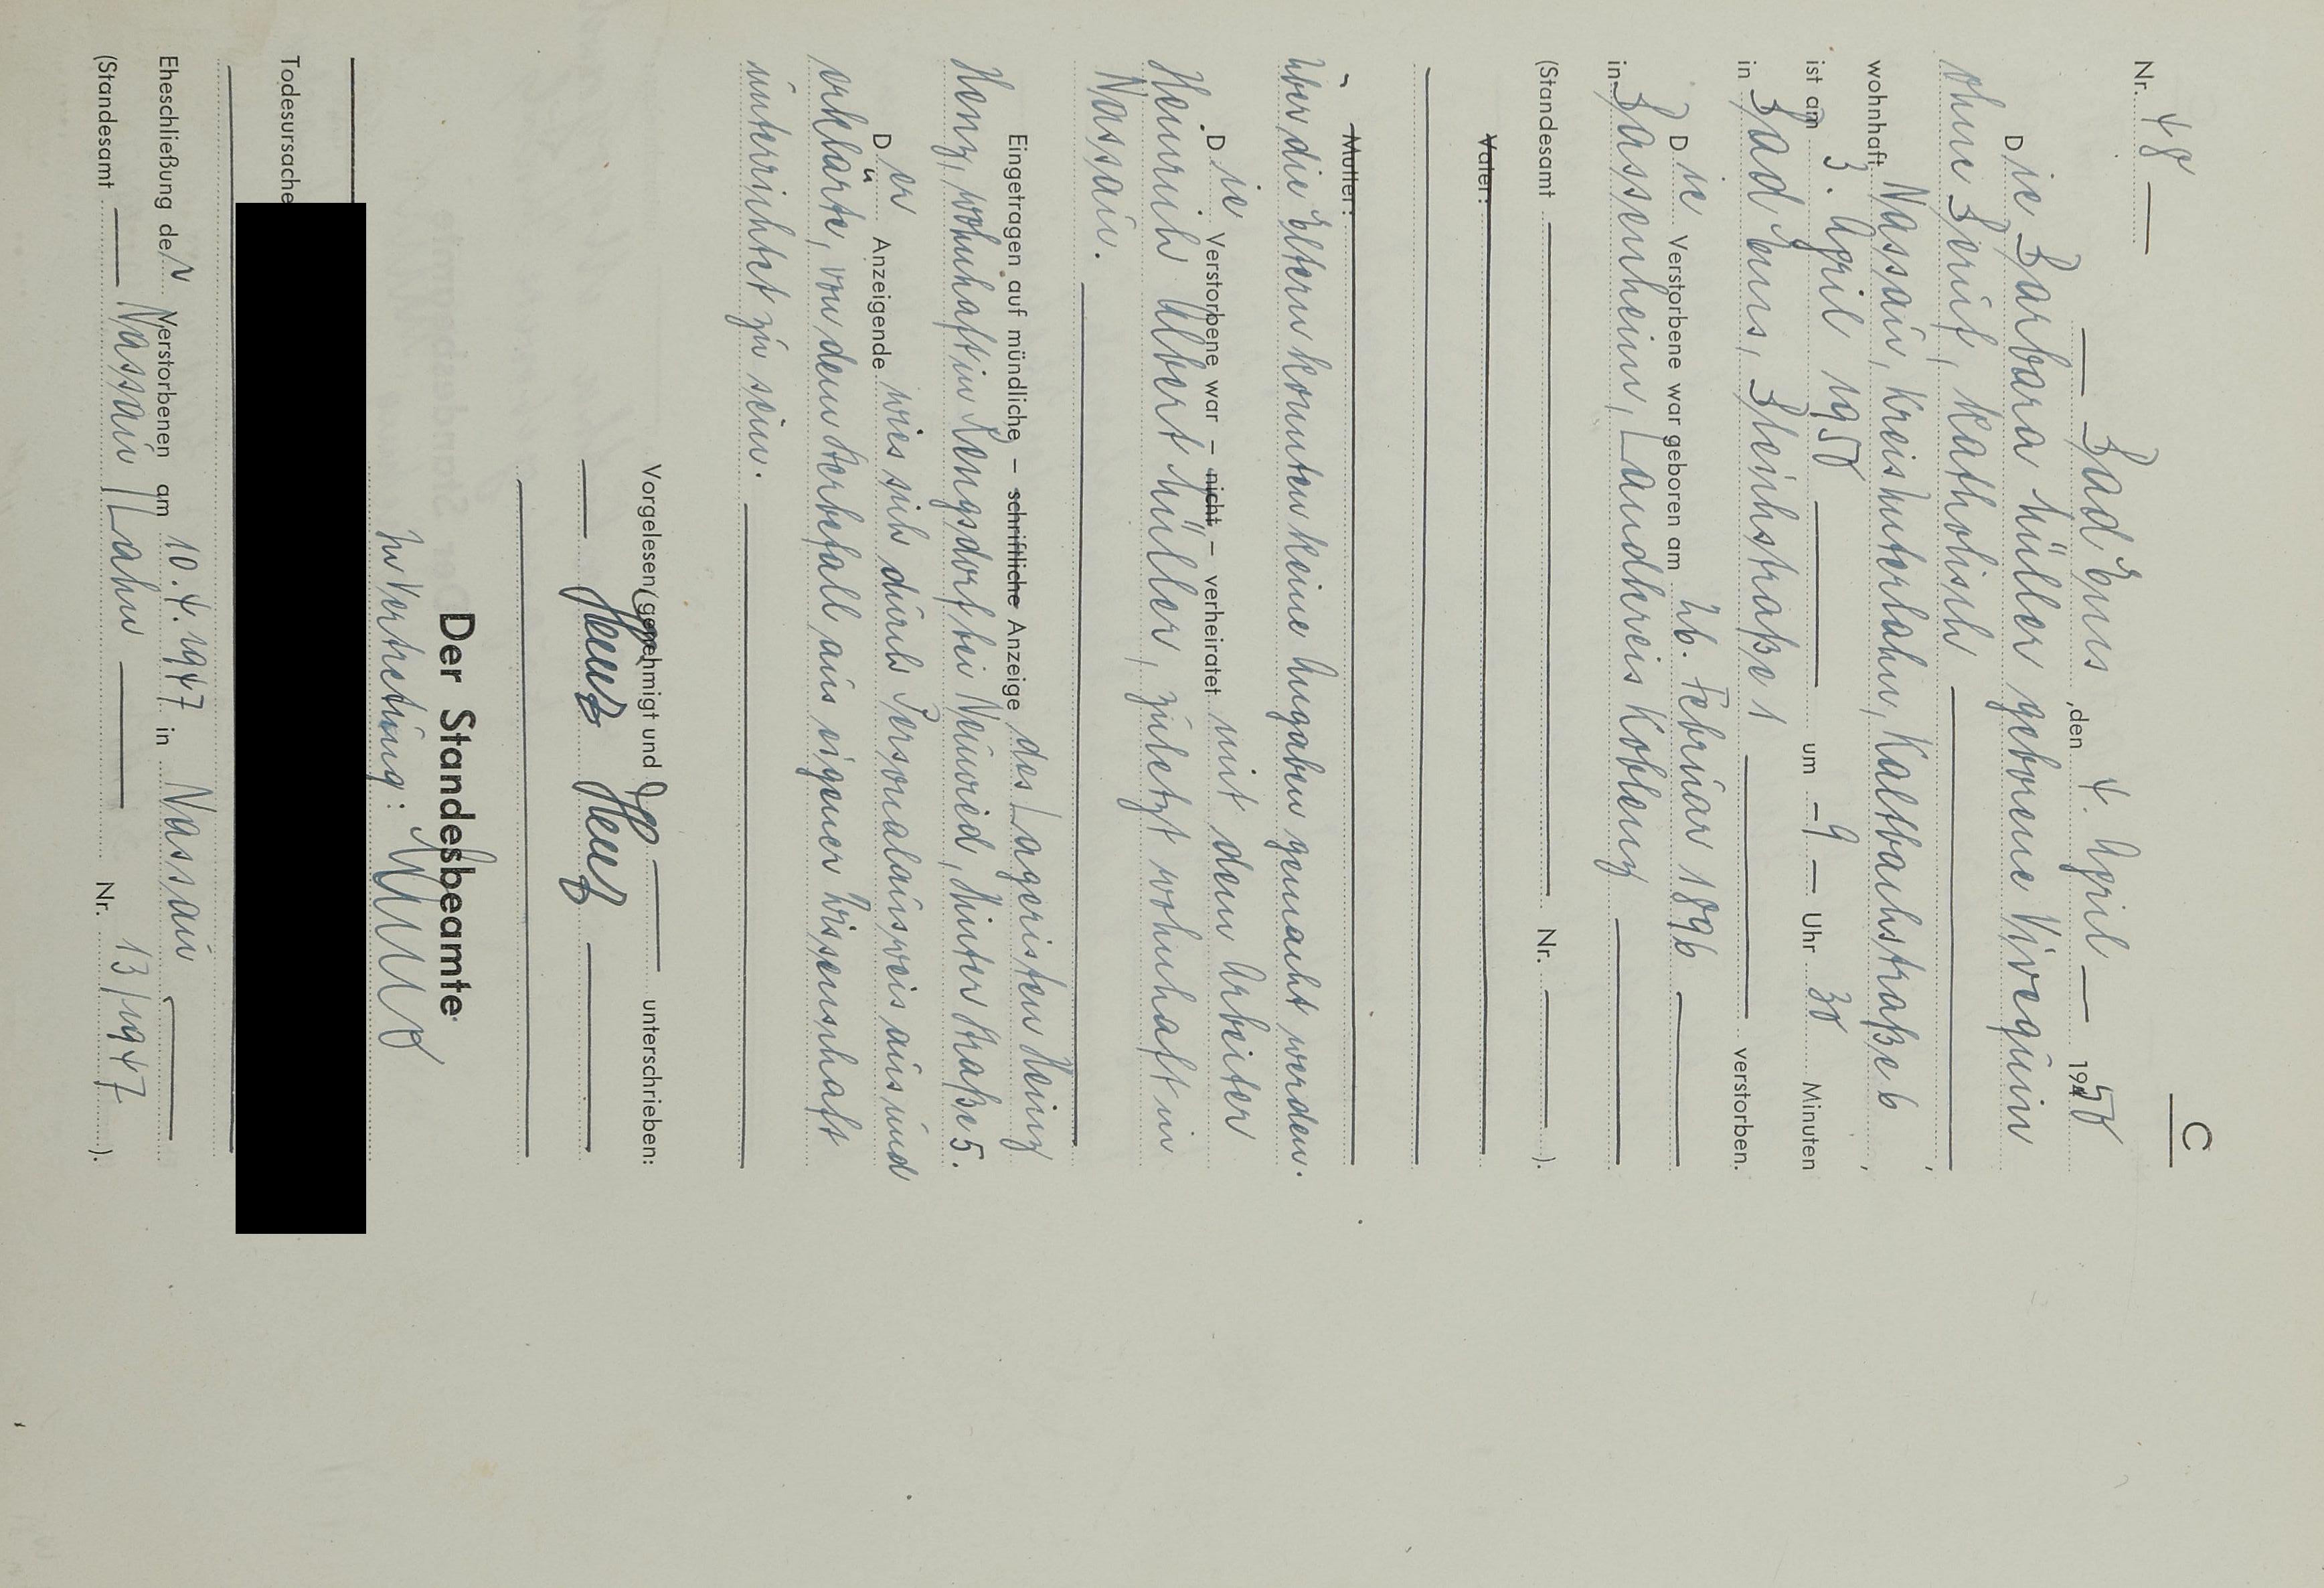 C
Nr. 48
Bad Ems, den 4. April 1950
Die Barbara Müller geborene Virequin
ohne Beruf, katholisch,
wohnhaft Nassau, Kreis Unterlahn, Kaltbachstraße 6,
ist am 3. April 1950 um - 9 - Uhr 30 Minuten
in Bad Ems, Bleichstraße 1 verstorben.
Die Verstorbene war geboren am 26. Februar 1896
in Bassenheim, Landkreis Koblenz
(Standesamt Nr. ).
Vater:
Mutter:
Über die Eltern konnten keine Angaben gemacht werden.
Die Verstorbene war – nicht – verheiratet mit dem Arbeiter
Heinrich Albert Müller, zuletzt wohnhaft in
Nassau.
Eingetragen auf mündliche – schriftliche Anzeige des Lageristen Heinz
Henz, wohnhaft in Hengsdorf bei Neuwied, Hinter Straße 5.
Der Anzeigende wies sich durch Personalausweis aus und
erklärte, von dem Sterbefall aus eigener Wissenschaft
unterrichtet zu sein.
Vorgelesen (genehmigt und unterschrieben:
Heinz Henz
Der Standesbeamte
In Vertretung:
Todesursache
Eheschließung der Verstorbenen am 10.4.1947 in Nassau
(Standesamt Nassau/Lahn Nr. 13/1947).